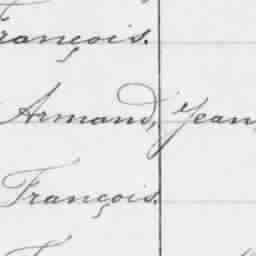 rançois.
Armand, Jean,
François.